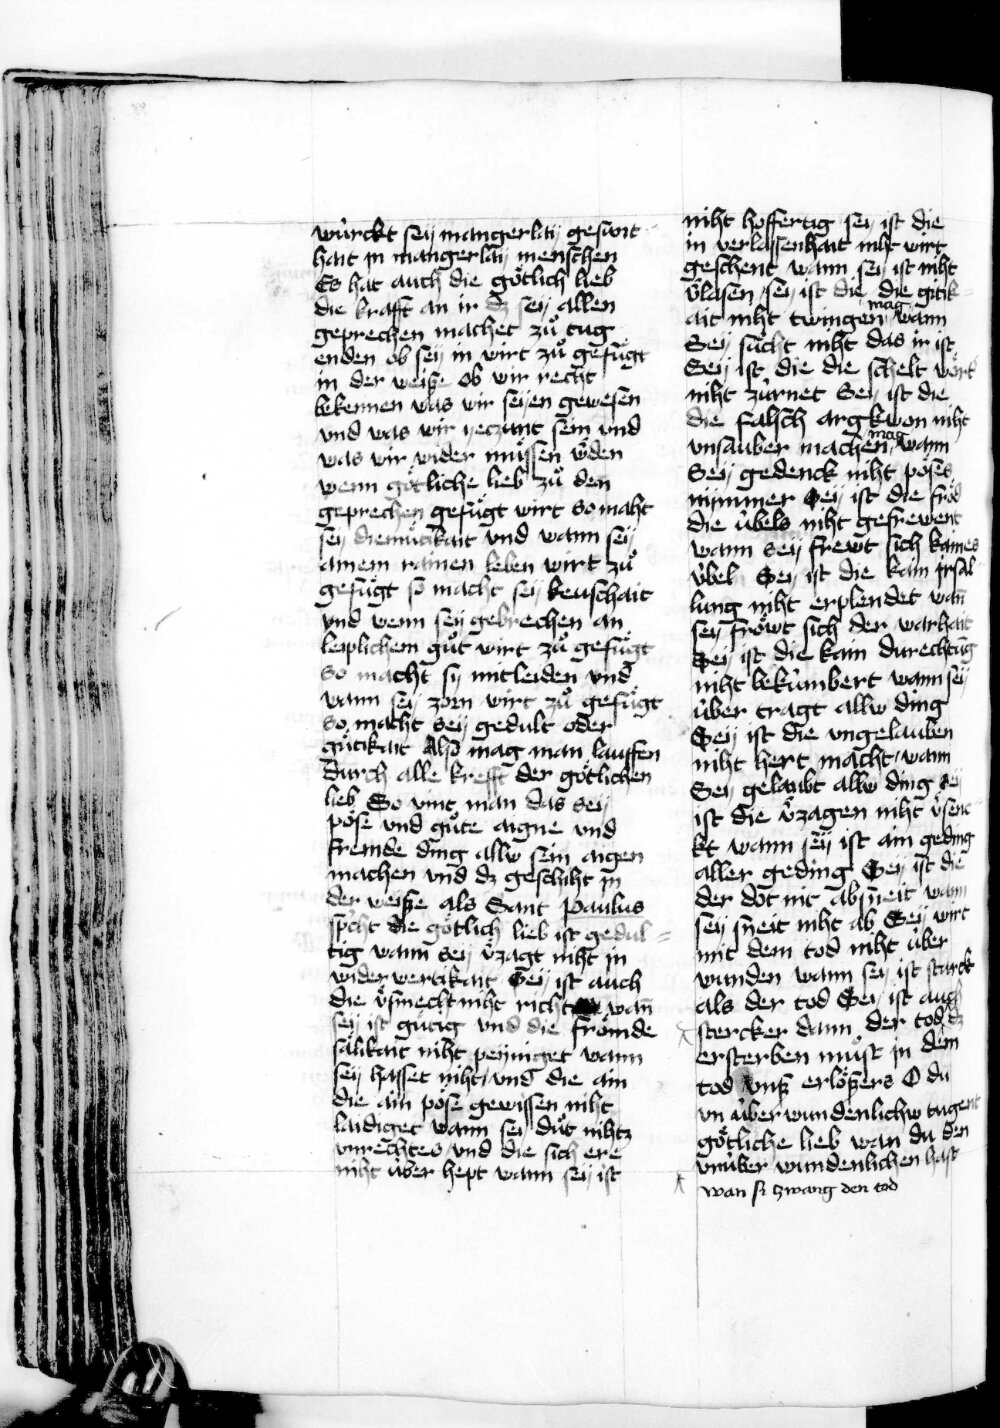 würckt seij mangerlaij gesunt
hait in mangerlaij menschen
Es hat auch die götlich lieb
die krafft an ir dz seij allen
geprechen machet zuͦ tug
enden ob seij in wirt zuͦ gefuͤgt
in der weiße ob wir recht
bekennen was wir seijen gewesen
vnd was wir yeczunt sein vnd
was wir wider muͤssen w̄den
wenn götliche lieb zuͦ den
geprechen gefuͤgt wirt so maht
seij diemuͤtikait vnd wann seij
ainem rainen leben wirt zuͦ
gefuͤgt so macht seij keuschait
vnd wenn seij gebrechen an
leiplichem guͦt wirt zuͦ gefuͤgt
So macht sij mitleiden vnd
wann seij zorn wirt zuͦ gefuͤgt
so macht seij gedult oder
guͤtikait Also mag man lauffen
durch alle krefft der götlichen
lieb So vint man das seij
pöse vnd guͦte aigne vnd
fremde ding allw sein aigen
machen vnd dz geschiht in
der weiße als Sant Paulus
sp̄cht die götlich lieb ist gedul=
tig wann seij v̈zagt niht in
widerwertikait Seij ist auch
die v̈smecht niht richt wan̄
seij ist guͤtig vnd die fromde
sälikait niht peijniget wann
seij hasset niht / vnd die ain
die ain pöse gewissen niht
laidiget wann seij duͦt nihtz
vnrechtes / vnd die sich ere
niht über hept wann seij ist
niht hoffertig seij ist die
in verlassenhait niht wirt
geschent wann seij ist niht
v̈lasen / seij ist die die gitik=
ait niht twingen mag wann
Seij suͤcht niht das ir ist
Seij ist die die schelt wort
niht zürnet Seij ist die
die falsch argkwon niht
vnsauber machen mag wann
Seij gedenck niht pöses
nijmmer Seij ist die fröd
die übels niht gefrewent
wann seij frewt sich kaines
übel Seij ist die kain irsal=
lung niht erplendet wan̄
seij fröwt sich der warhait
Seij ist die kain durechtūg
niht bekümbert wann seij
über tragt allw ding
Seij ist die vngelauben
niht hert macht / wann
Seij gelaubt allw ding Seij
ist die v̈zagen niht v̈senc
kt wann seij ist ain geding
aller geding Seij ist die
der dot nit absneit wann
seij sneit niht ab Seij wirt
mit dem tod niht über
wunden wann seij ist starck
als der tod Seij ist auch
stercker dann der tod dz
ersterben muͦst in dem
tod vnß erlößers O du
vn überwundenlichw tugent
götliche lieb wan du den
vnüber wundenlichen hast
wan si zwang den tod